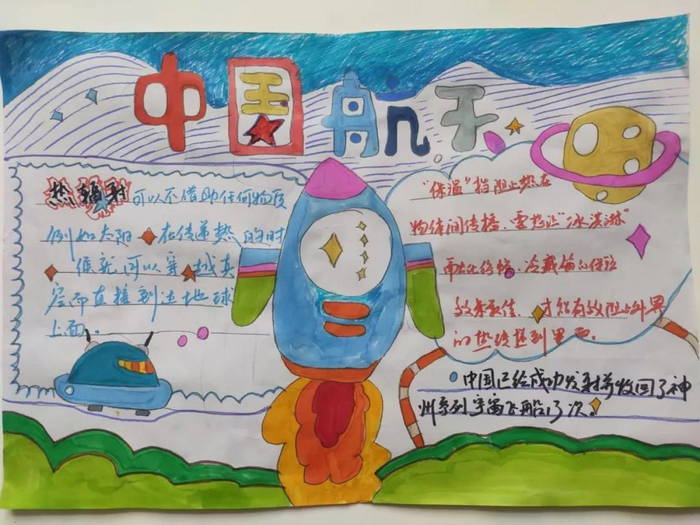 中国航天
热辐射可以不借助任何物质
例如太阳 在传递热的时
候就可以穿越真
空而直接到达地球
上面。
"保温"指阻止热在
物体间传播,要想让"冰淇淋"
不
效果最佳,才能有效阻止外界
的热传揽到里面。
中国已给成功发射并收回了神
州系列宇宙飞船了次。